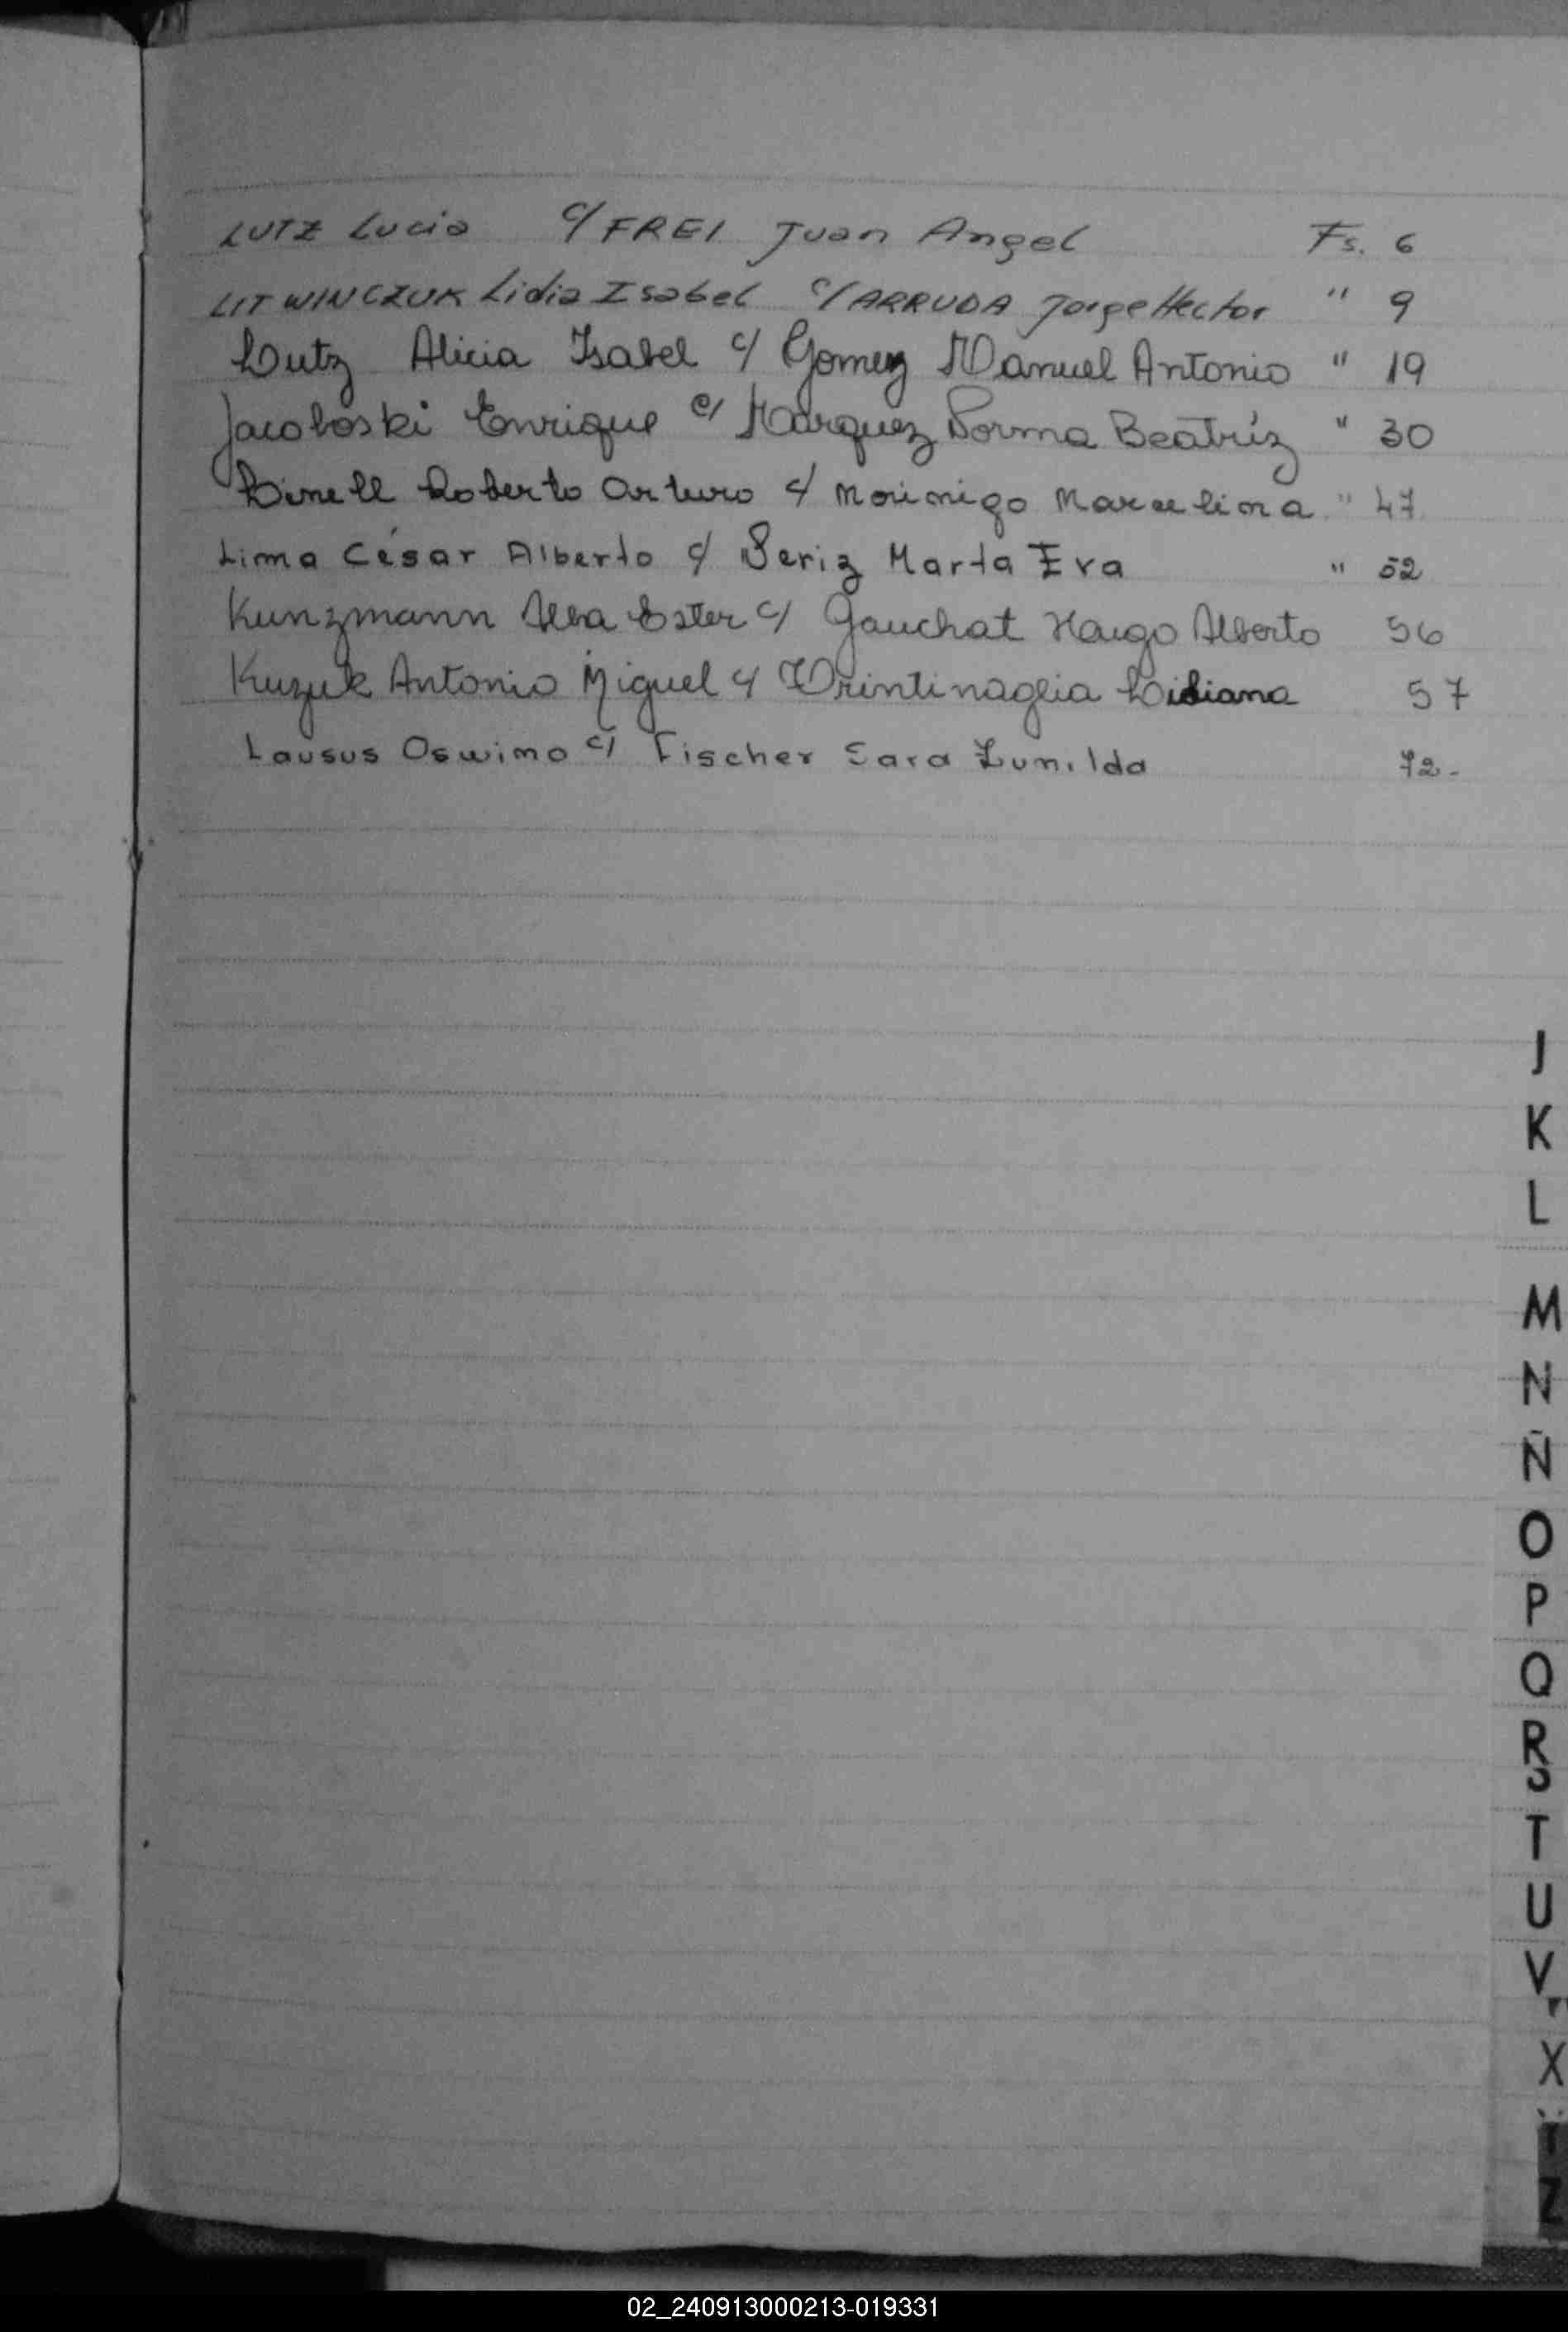 LUTZ Lucia c/ FREI Juan Angel Fs. 6
LITWINCZUK Lidia Isabel c/ ARRUDA Jorge Hector " 9
Lutz Alicia Isabel c/ Gomez Manuel Antonio " 19
Jacoboski Enrique c/ Marquez Norma Beatríz " 30
Roberto Arturo c/ Morinigo Marcelina " 47
Lima César Alberto c/ Periz Marta Eva " 52
Kunzmann Alba Ester c/ Gauchat Hugo Alberto 56
Kuzuk Antonio Miguel c/ Liliana 57
Lausus Oswimo c/ Fischer Sara Zunilda 72-
J
K
L
M
N
Ñ
O
P
Q
R
S
T
U
V
X
Y
Z
02_240913000213-019331